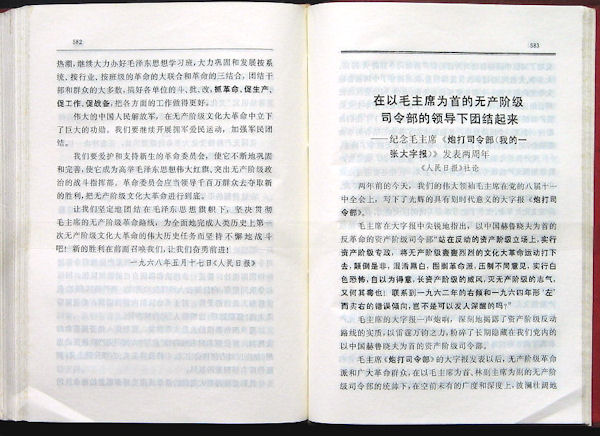 582
热潮，继续大力办好毛泽东思想学习班，大力巩固和发展按系
统、按行业、按班级的革命的大联合和革命的三结合，团结干
部和群众的大多数，搞好各单位的斗、批、改，抓革命、促生产、
促工作、促战备，把各方面的工作做得更好。
伟大的中国人民解放军，在无产阶级文化大革命中立下
了巨大的功勋。我们要继续开展拥军爱民运动，加强军民团
结。
我们要爱护和支持新生的革命委员会，使它不断地巩固
和完善，使它成为高举毛泽东思想伟大红旗，突出无产阶级政
治的战斗指挥部。革命委员会应当领导千百万群众去夺取新
的胜利，把无产阶级文化大革命进行到底。
让我们坚定地团结在毛泽东思想旗帜下，坚决贯彻
毛主席的无产阶级革命路线，为全面地完成人类历史上第一
次无产阶级文化大革命的伟大历史任务而坚持不懈地战斗
吧！新的胜利在前面召唤我们，让我们奋勇前进！
一九六八年五月十七日《人民日报》
583
在以毛主席为首的无产阶级
司令部的领导下团结起来
——纪念毛主席《炮打司令部（我的一
张大字报）》发表两周年
《人民日报》社论
两年前的今天，我们的伟大领袖毛主席在党的八届十一
中全会上，写下了光辉的具有划时代意义的大字报《炮打司
令部》。
毛主席在大字报中尖锐地指出，以中国赫鲁晓夫为首的
反革命的资产阶级司令部“站在反动的资产阶级立场上，实行
资产阶级专政，将无产阶级轰轰烈烈的文化大革命运动打下
去，颠倒是非，混淆黑白，围剿革命派，压制不同意见，实行白
色恐怖，自以为得意，长资产阶级的威风，灭无产阶级的志气，
又何其毒也！联系到一九六二年的右倾和一九六四年形‘左’
而实右的错误倾向，岂不是可以发人深醒的吗？”
毛主席的大字报一声炮响，深刻地揭露了资产阶级反动
路线的实质，以雷霆万钧之力，粉碎了长期隐藏在我们党内的
以中国赫鲁晓夫为首的资产阶级司令部。
毛主席《炮打司令部》的大字报发表以后，无产阶级革命
派和广大革命群众，在以毛主席为首、林副主席为副的无产阶
级司令部的统帅下，在空前未有的广度和深度上，波澜壮阔地